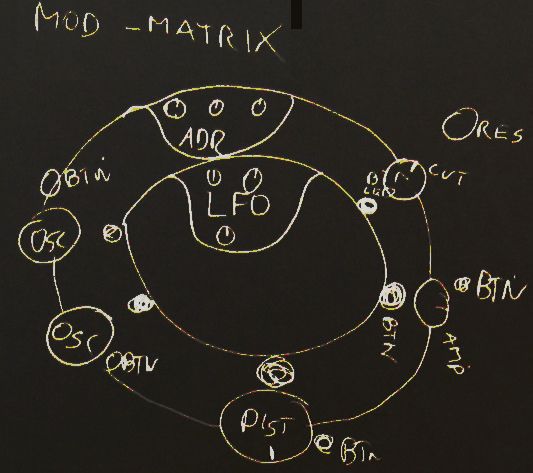 MOD - MATRIX
ADR
RES
BTN
CUT
LFO
OSC
BTN
BTN
OSC
AMP
BTN
DIST
BTN